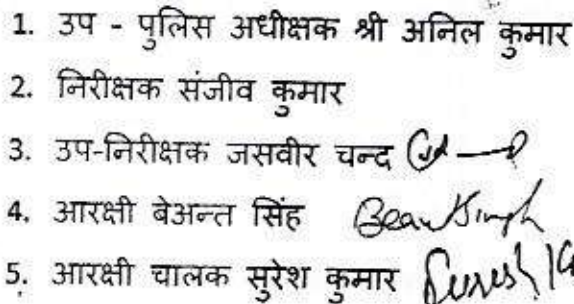 1. उप - पुलिस अधीक्षक श्री अनिल कुमार
2. निरीक्षक संजीव कुमार
3. उप-निरीक्षक जसवीर चन्द
4. आरक्षी बेअन्त सिंह Beant Singh
5. आरक्षी चालक सुरेश कुमार Suresh